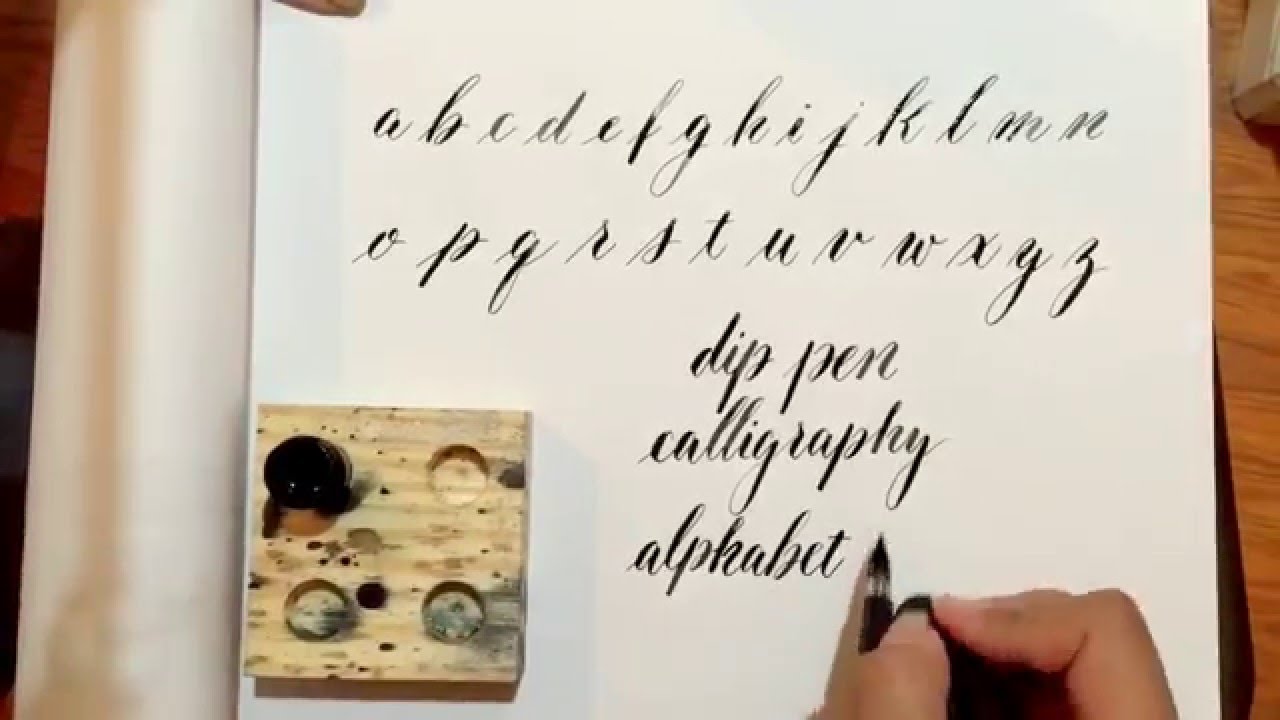 a b c d e f g h i j k l m n
o p q r s t u v w x y z
dip pen
calligraphy
alphabet